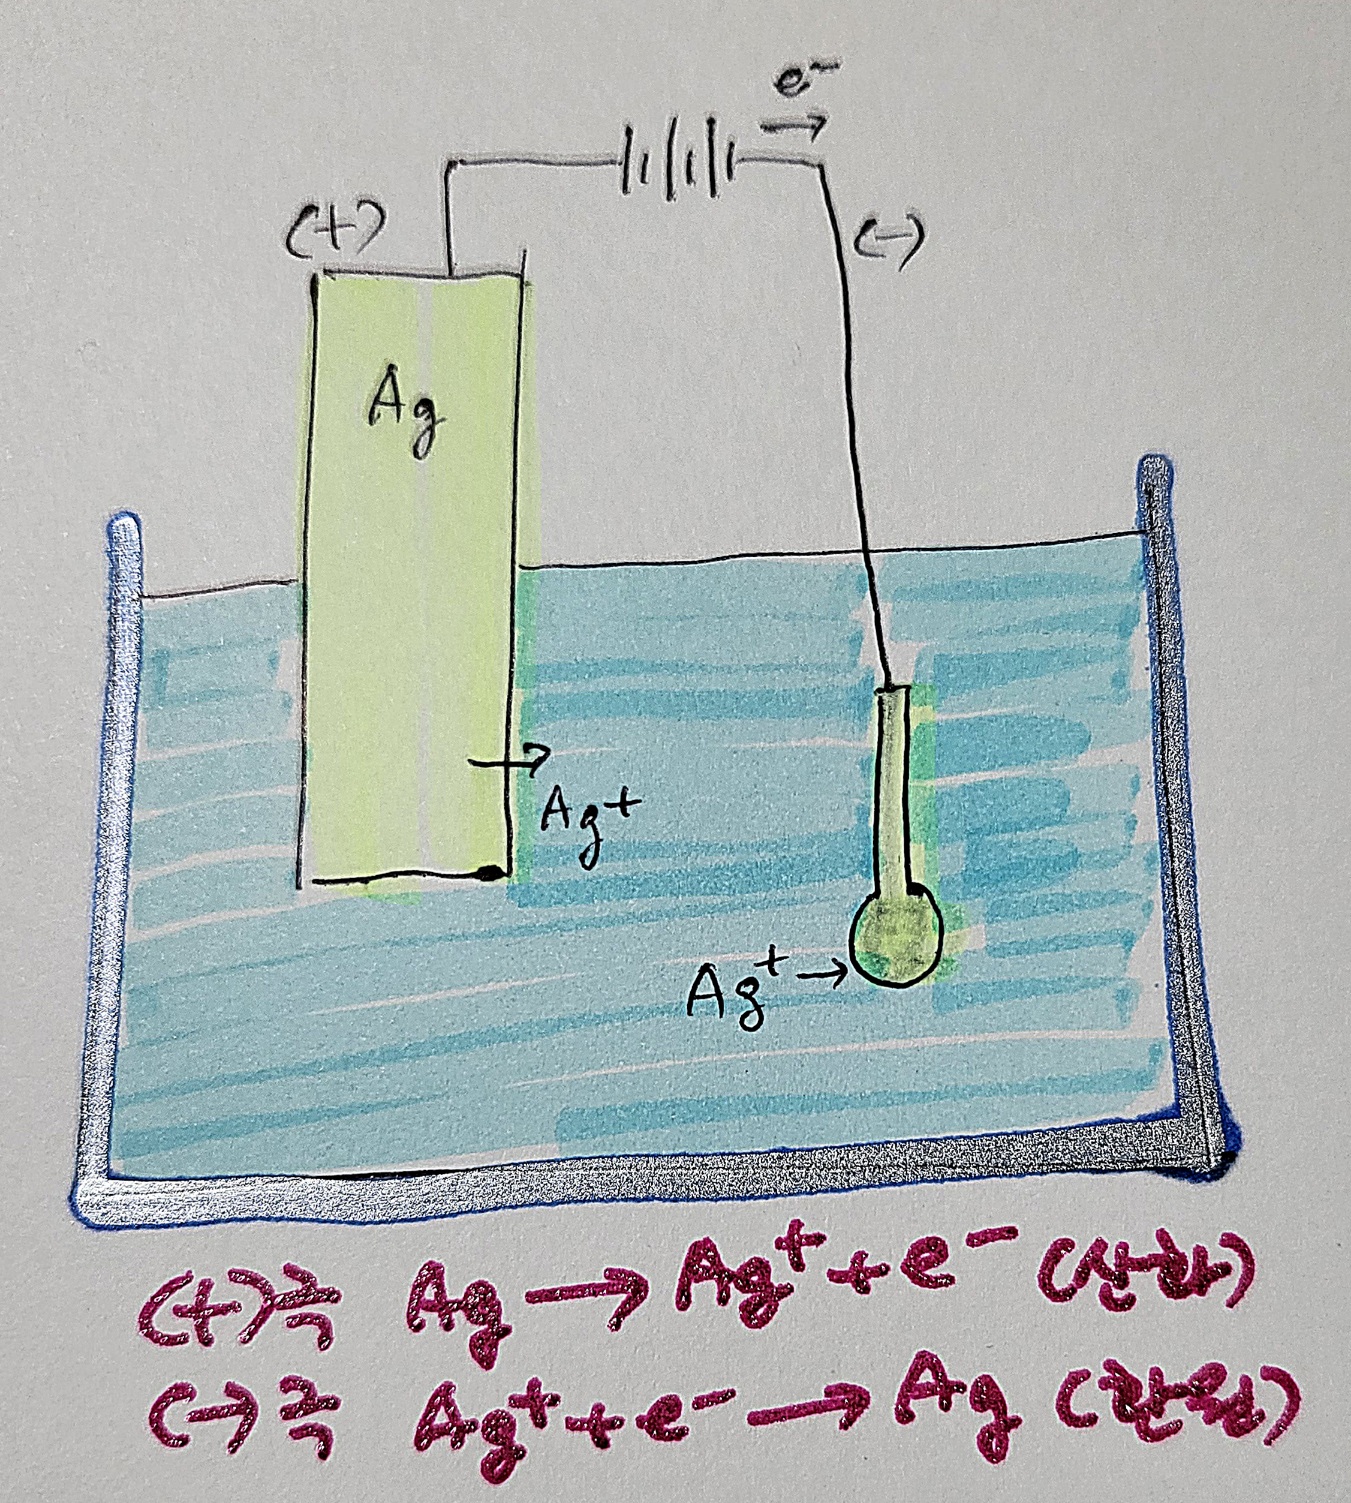 e⁻
(+)
(-)
Ag
Ag+
Ag⁺
(+)극 Ag → Ag⁺ + e⁻ (산화)
(-)극 Ag⁺ + e⁻ → Ag (환원)